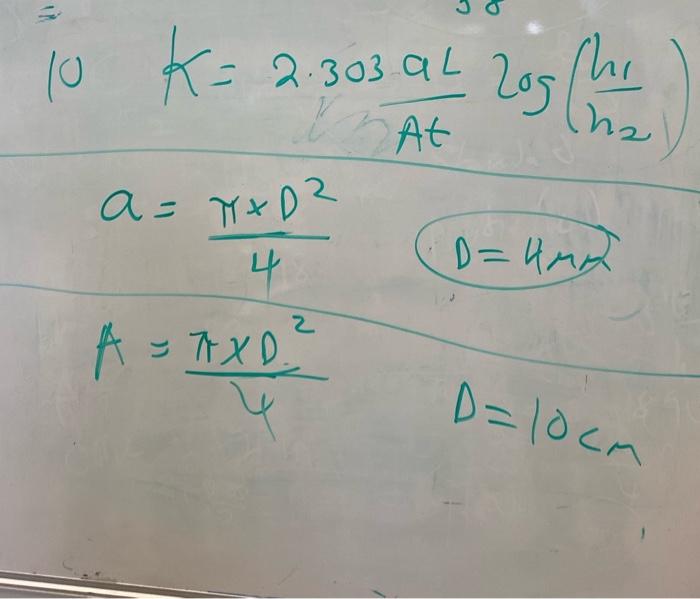 10 K = 2.303 aL / At log (h1 / h2)
a = π × D² / 4 D = 4mm
A = π × D² / 4 D = 10cm